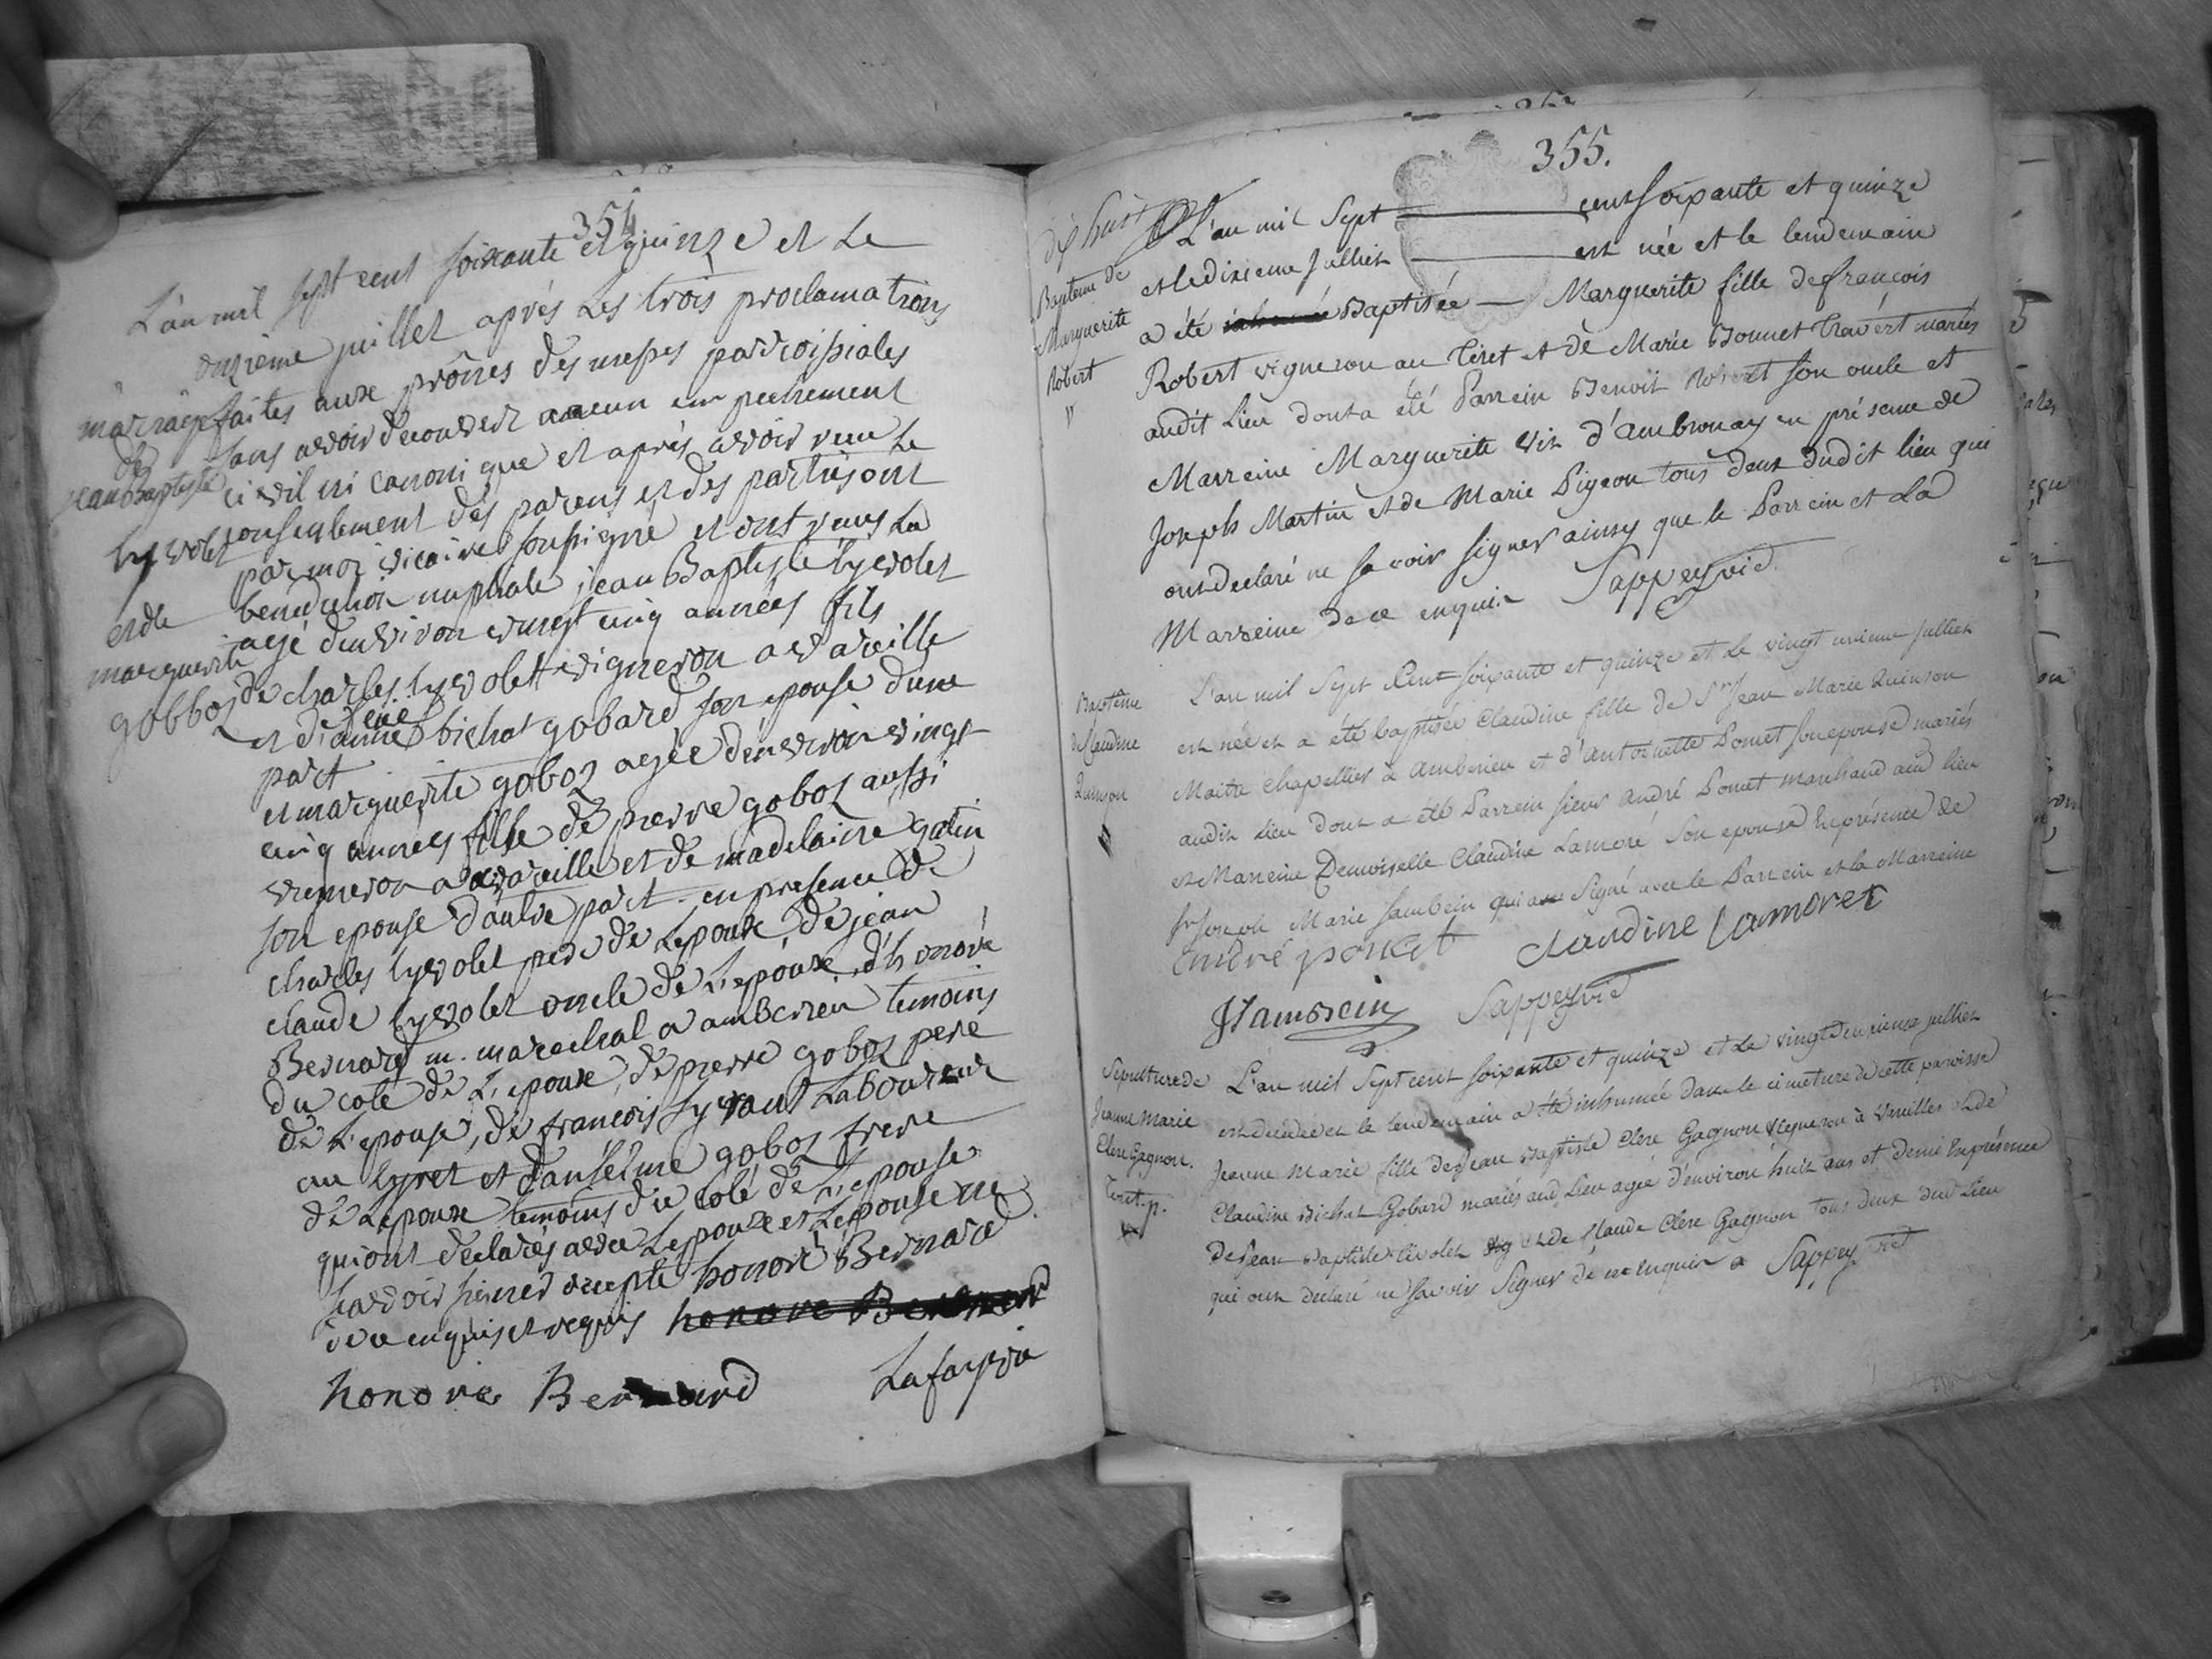 354
L'an mil sept cent soixante et quinze et Le
onzieme juillet aprés Les trois proclamations
faites aux prônes des messes paroissiales
sans avoir decouvert aucun empechement
civil ni canonique et aprés avoir veu le
consentement des parens et des parties ont
par moi vicaire soussigné et ont reçus La
benediction nuptiale jean Baptiste tyvolet
agé d'environ vingt cinq années fils
de charles tyvolet vigneron a vareille
et d' bichat gobard son epouse d'une
part
et marguerite goboz agée d'environ vingt
cinq années fille de pierre goboz aussi
vigneron a vareille et de madelaine gatin
son epouse d'autre part en presence de
charles tyvolet pere de L'epoux, de jean
claude tyvolet oncle de L'epoux, d'honoré
Bernard m. marechal a amberieu temoins
du coté de L'epoux, de pierre goboz pere
de L'epouse, de françois Laboureur
au tyret et d'anselme goboz frere
de L'epouse temoins du coté de L'epouse
qui ont declarés avec L'epoux et L'epouse ne
savoir signer excepté honoré Bernard
de ce enquis et requis honoré Bernard
honoré Bernard
mariage
de
jean Baptiste
tyvolet
et de
marguerite
goboz
355.
L'an mil Sept cent soixante et quinze
et le dixieme Juillet est née et le lendemain
a été inhumée Baptisée Marguerite fille de françois
Robert vigneron au Tiret et de Marie Bonnet Travert mariés
audit Lieu dont a été Parrein Benoit Robert son oncle et
Marreine Marguerite Vin d'Ambronay en présence de
Joseph Martin et de Marie Pigeon tous deux dudit lieu qui
ont declaré ne savoir signer ainsy que le Parrein et La
Marreine de ce enquis Sappeyvid
Bapteme de
Marguerite
Robert
L'an mil Sept Cent soixante et quinze et Le vingt unieme Juillet
est née et a été baptisée Claudine fille de Sr Jean Marie Quinson
Maitre Chapellier à Amberieu et d'Antoinette Ponset son epouse mariés
audit Lieu dont a été Parrein sieur André Ponset marchand aud lieu
et Marreine Demoiselle Claudine Lamoré Son epouse En présence de
Sr Joseph Marie Jambein qui a Signé avec le Parrein et la Marreine
andré ponset claudine Lamoret
Sappeyvid
Baptême
de Claudine
Quinson
L'an mil Sept cent soixante et quinze et Le vingt deuxieme juillet
est decedée et le lendemain a été inhumée dans le cimetiere de cette paroisse
Jeanne Marie fille de Jean Baptiste Clere Gagnon Vigneron à Vareilles et de
Claudine Bichat Gobard mariés aud Lieu agée d'environ huit ans et demie En présence
de Jean Baptiste Tivolet et de Claude Clere Gagnon tous deux dud Lieu
qui ont declaré ne savoir Signer de ce enquis Sappeyvid
Sepulture de
Jeanne Marie
Clere Gagnon.